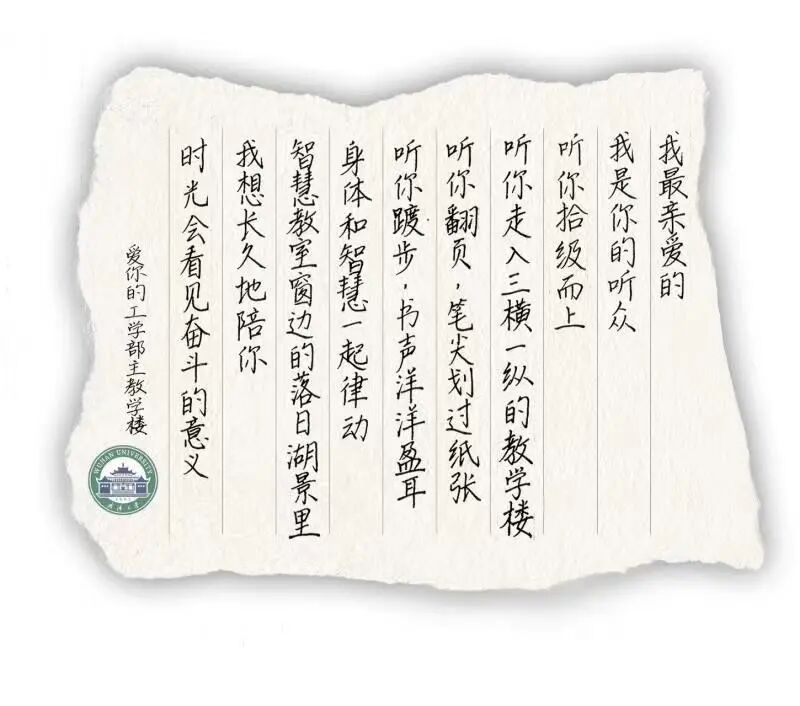 我最亲爱的
我是你的听众
听你拾级而上
听你走入三横一纵的教学楼
听你翻页，笔尖划过纸张
听你踱步，书声洋洋盈耳
身体和智慧一起律动
智慧教室窗边的落日湖景里
我想长久地陪你
时光会看见奋斗的意义
爱你的工学部主教学楼
WUHAN UNIVERSITY
1893
武汉大学